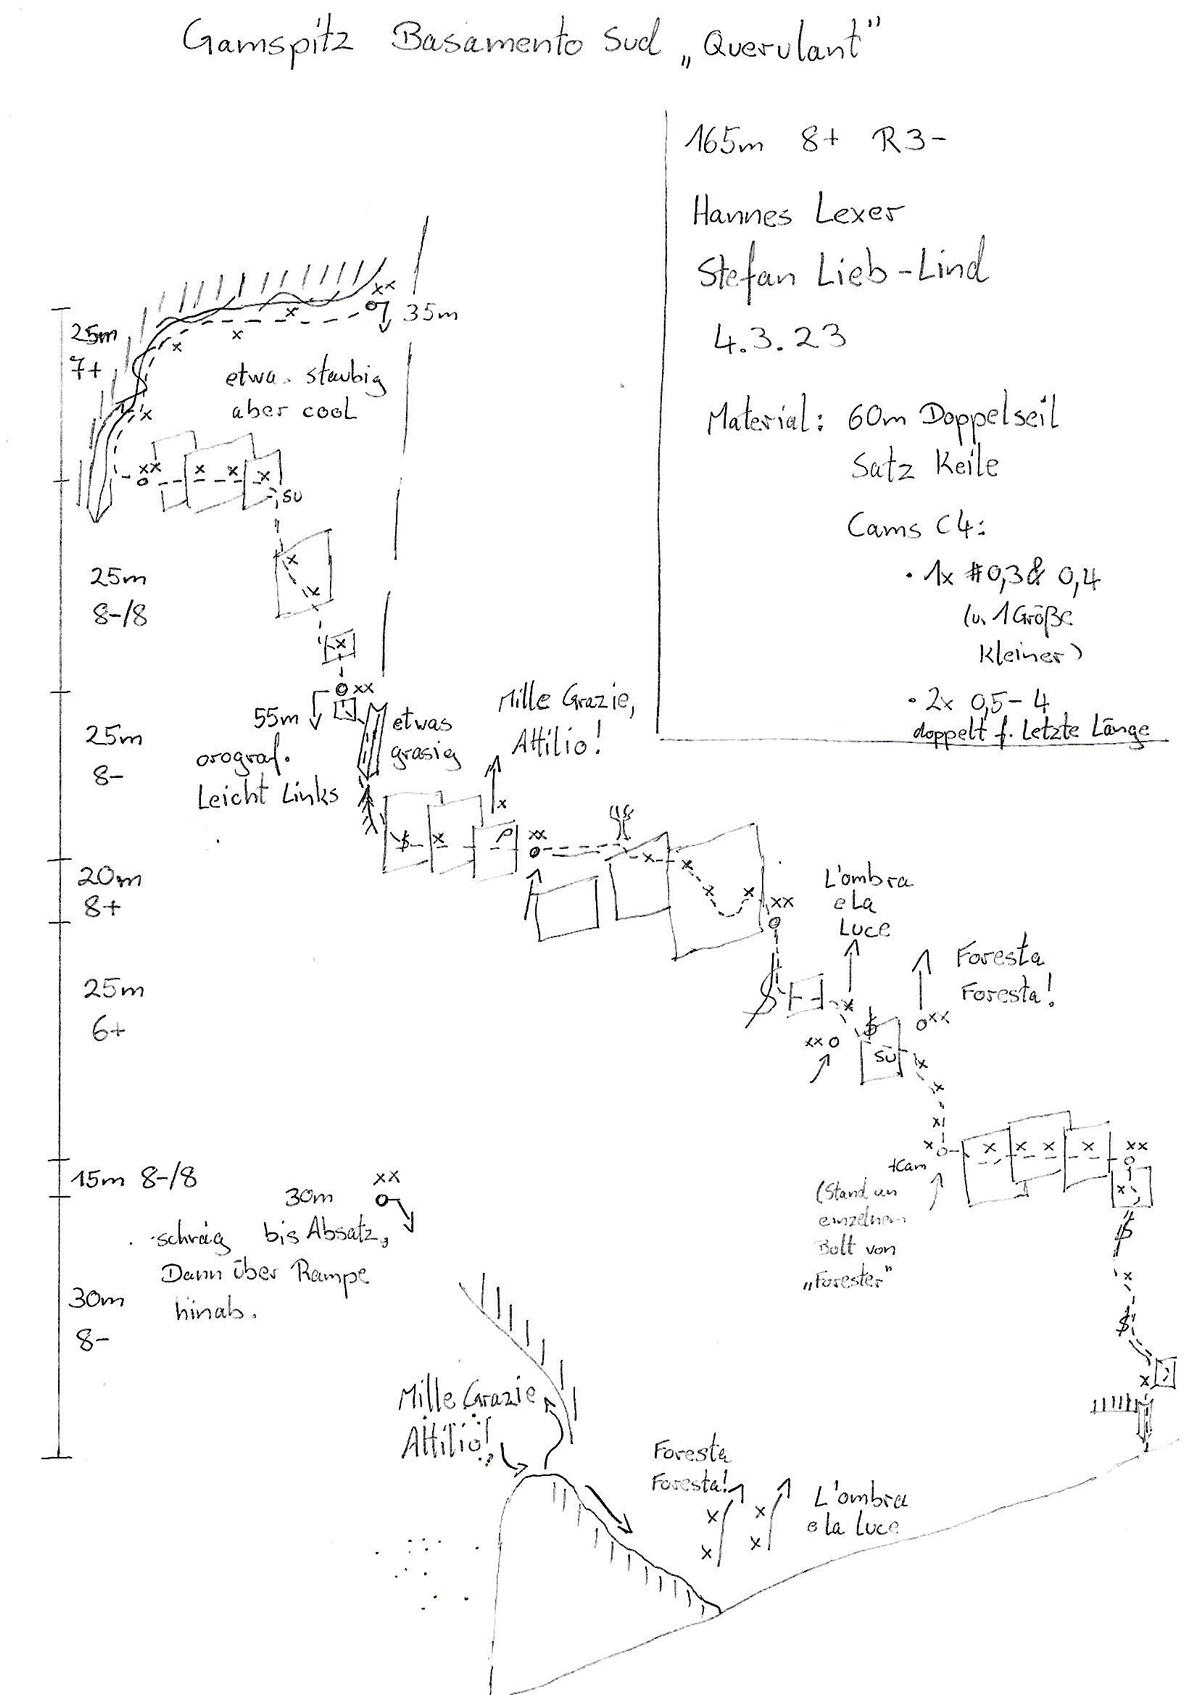 Gamspitz Basamento Sud „Querulant"
165m 8+ R3-
Hannes Lexer
Stefan Lieb-Lind
4.3.23
Material: 60m Doppelseil
Satz Keile
Cams C4:
• 1x #0,3 & 0,4
(u. 1 Größe
kleiner)
• 2x 0,5-4
doppelt f. Letzte Länge
xx
35m
25m
7+
etwas staubig
aber cool
xx
SU
25m
8-/8
xx
55m
orograf.
Leicht Links
etwas
grasig
Mille Grazie,
Attilio!
25m
8-
xx
20m
8+
xx
L'ombra
e La
Luce
Foresta
Foresta!
xx
xx
SU
25m
6+
+Cam
xx
(Stand an
einzelnem
Bolt von
„Forester"
15m 8-/8
xx
30m
schräg bis Absatz,
Dann über Rampe
hinab.
30m
8-
Mille Grazie
Attilio!
Foresta
Foresta!
L'ombra
e la Luce